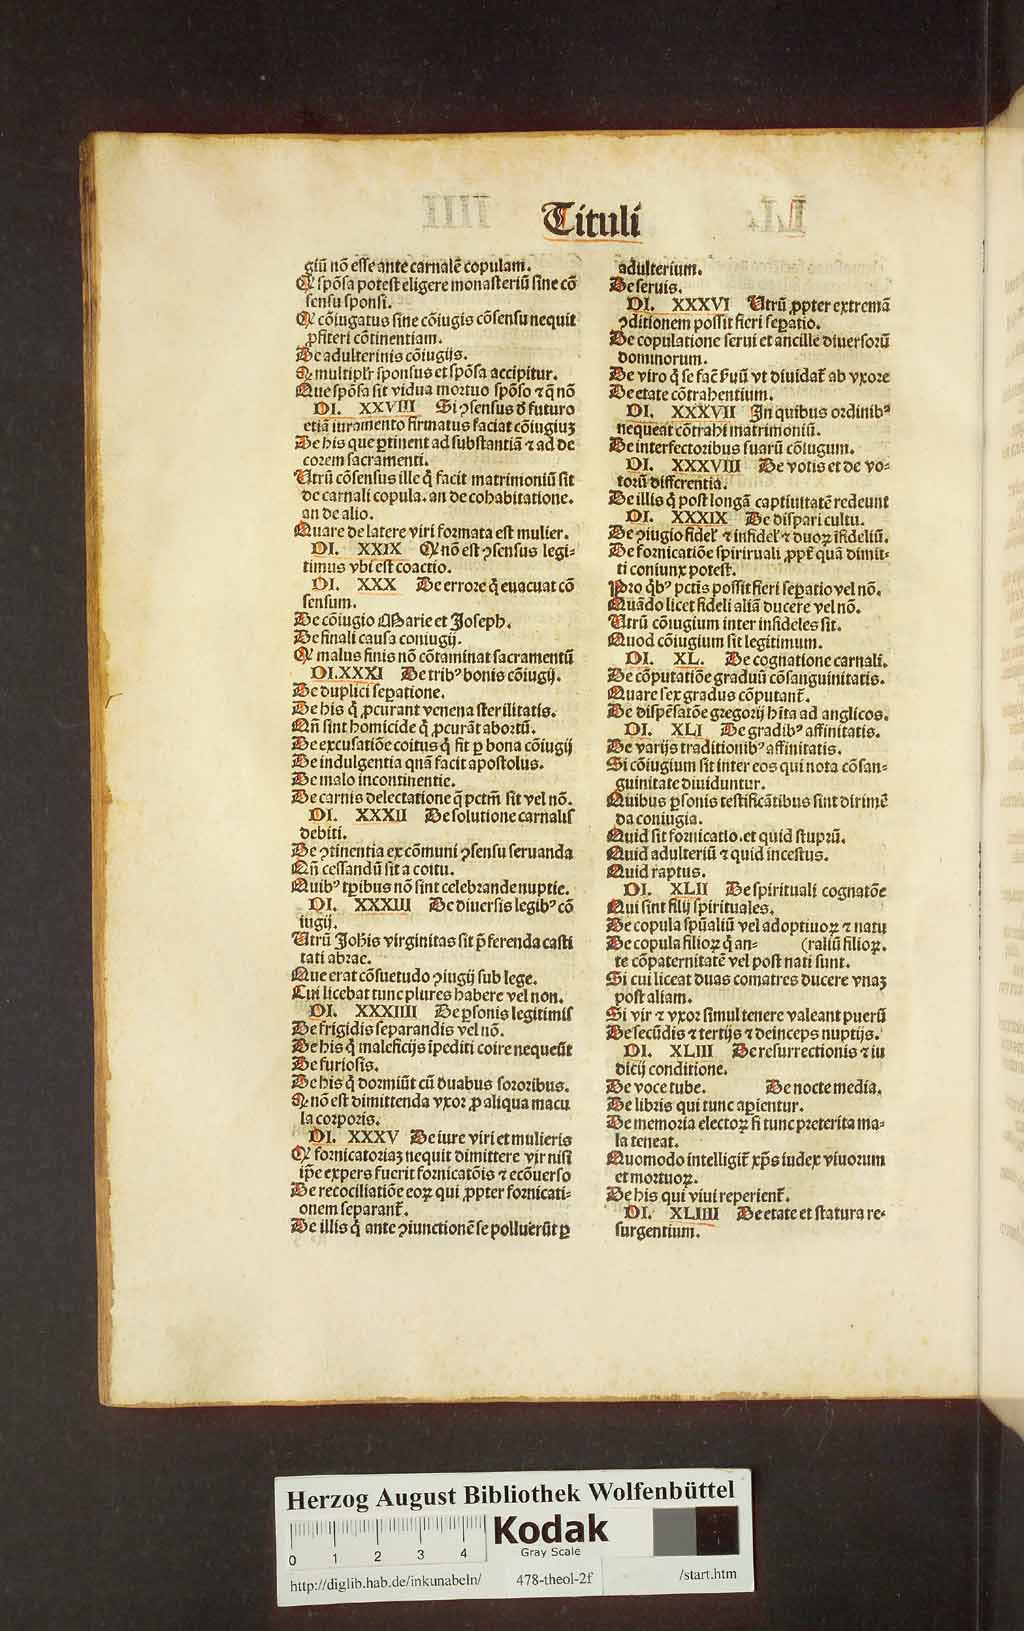 Tituli
giū nō esse ante carnalē copulam.
Q spōsa potest eligere monasteriū sine cō
sensu sponsi.
Q cōiugatus sine cōiugis cōsensu nequit
ꝓfiteri cōtinentiam.
De adulterinis cōiugijs.
Q multiplr̄ sponsus et spōsa accipitur.
Que spōsa sit vidua mortuo spōso ⁊ q̄ nō
DI. XXVIII Si ꝯsensus d̄ futuro
etiā iuramento firmatus faciat cōiugiuꝫ
De his que ꝑtinent ad substantiā ⁊ ad de
corem sacramenti.
Utrū cōsensus ille q̄ facit matrimoniū sit
de carnali copula. an de cohabitatione.
an de alio.
Quare de latere viri formata est mulier.
DI. XXIX Q nō est ꝯsensus legi-
timus vbi est coactio.
DI. XXX De errore q̄ euacuat cō
sensum.
De cōiugio Marie et Joseph.
De finali causa coniugij.
Q malus finis nō cōtaminat sacramentū
DI.XXXI De tribꝰ bonis cōiugij.
De duplici seꝑatione.
De his q̄ ꝓcurant venena sterilitatis.
Qn̄ sint homicide q̄ ꝓcurāt abortū.
De excusatiōe coitus q̄ fit ꝑ bona cōiugij
De indulgentia quā facit apostolus.
De malo incontinentie.
De carnis delectatione q̄ pctm̄ sit vel nō.
DI. XXXII De solutione carnalis
debiti.
De ꝯtinentia ex cōmuni ꝯsensu seruanda
Qn̄ cessandū sit a coitu.
Quibꝰ tꝑibus nō sint celebrande nuptie.
DI. XXXIII De diuersis legibꝰ cō
iugij.
Utrū Joh̄is virginitas sit p̄ferenda casti
tati abrae.
Que erat cōsuetudo ꝯiugij sub lege.
Cui licebat tunc plures habere vel non.
DI. XXXIIII De ꝑsonis legitimis
De frigidis separandis vel nō.
De his q̄ maleficijs īpediti coire nequeūt
De furiosis.
De his q̄ dormiūt cū duabus sororibus.
Q nō est dimittenda vxor ꝓ aliqua macu
la corporis.
DI. XXXV De iure viri et mulieris
Q fornicatoriaꝫ nequit dimittere vir nisi
ip̄e expers fuerit fornicatōis ⁊ ecōuerso
De recociliatiōe eoꝝ qui ꝓpter fornicati-
onem separant̄.
De illis q̄ ante ꝯiunctionē se polluerūt ꝑ
adulterium.
De seruis.
DI. XXXVI Utrū ꝓpter extremā
ꝯditionem possit fieri seꝑatio.
De copulatione serui et ancille diuersorū
dominorum.
De viro q̄ se fac̄ ẜuū vt diuidat̄ ab vxore
De etate cōtrahentium.
DI. XXXVII In quibus ordinibꝰ
nequeat cōtrahi matrimoniū.
De interfectoribus suarū cōiugum.
DI. XXXVIII De votis et de vo-
torū differentia.
De illis q̄ post longā captiuitatē redeunt
DI. XXXIX De dispari cultu.
De ꝯiugio fidel̄ ⁊ infidel̄ ⁊ duoꝝ īfideliū.
De fornicatiōe spirituali ꝓpt̄ quā dimit-
ti coniunx potest.
Pro q̄bꝰ pctīs possit fieri seꝑatio vel nō.
Quādo licet fideli aliā ducere vel nō.
Utrū cōiugium inter infideles sit.
Quod cōiugium sit legitimum.
DI. XL. De cognatione carnali.
De cōputatiōe graduū cōsanguinitatis.
Quare sex gradus cōputant̄.
De dispēsatōe gregorij h̄ita ad anglicos.
DI. XLI De gradibꝰ affinitatis.
De varijs traditionibꝰ affinitatis.
Si cōiugium sit inter eos qui nota cōsan-
guinitate diuiduntur.
Quibus ꝑsonis testificātibus sint dirimē
da coniugia.
Quid sit fornicatio. et quid stuprū.
Quid adulteriū ⁊ quid incestus.
Quid raptus.
DI. XLII De spirituali cognatōe
Qui sint filij spirituales.
De copula spūaliū vel adoptiuoꝝ ⁊ natu
De copula filioꝝ q̄ an- (raliū filioꝝ.
te cōpaternitatē vel post nati sunt.
Si cui liceat duas comatres ducere vnaꝫ
post aliam.
Si vir ⁊ vxor simul tenere valeant puerū
De secūdis ⁊ tertijs ⁊ deinceps nuptijs.
DI. XLIII De resurrectionis ⁊ iu
dicij conditione.
De voce tube. De nocte media.
De libris qui tunc aꝑientur.
De memoria electoꝝ si tunc preterita ma-
la teneat.
Quomodo intelligit̄ xp̄s iudex viuorum
et mortuoꝝ.
De his qui viui reperient̄.
DI. XLIIII De etate et statura re-
surgentium.
Herzog August Bibliothek Wolfenbüttel
0 1 2 3 4
Kodak
Gray Scale
http://diglib.hab.de/inkunabeln/ 478-theol-2f /start.htm